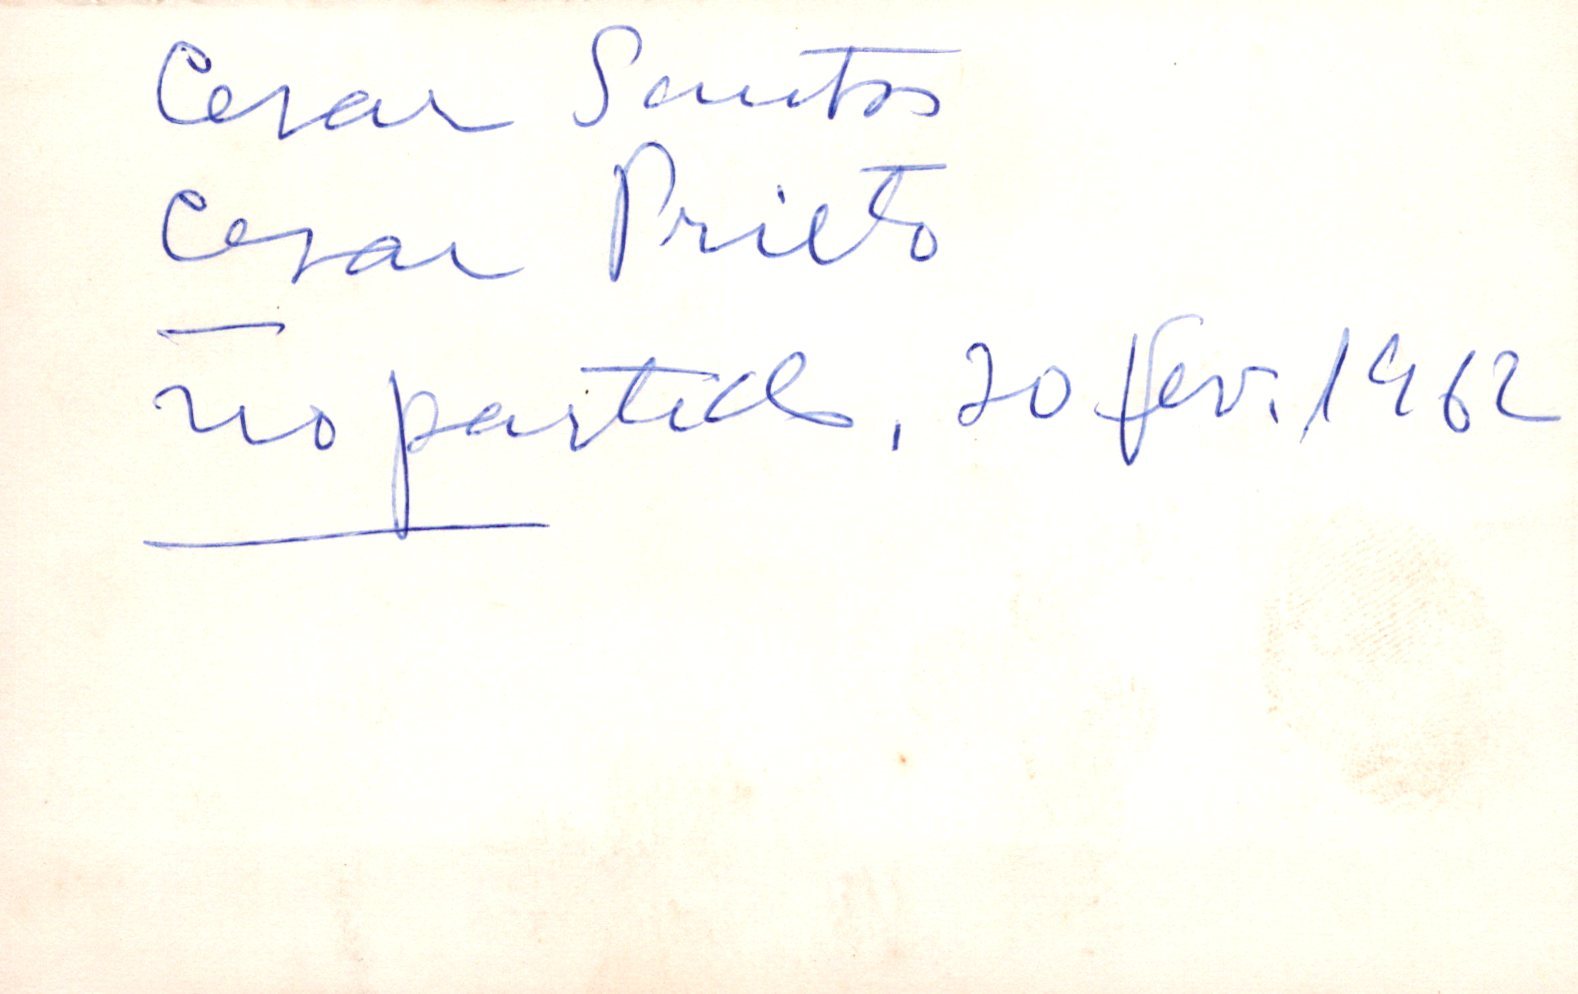 Cesar Santos
Cesar Prieto
—
no partido, 20 fev. 1962